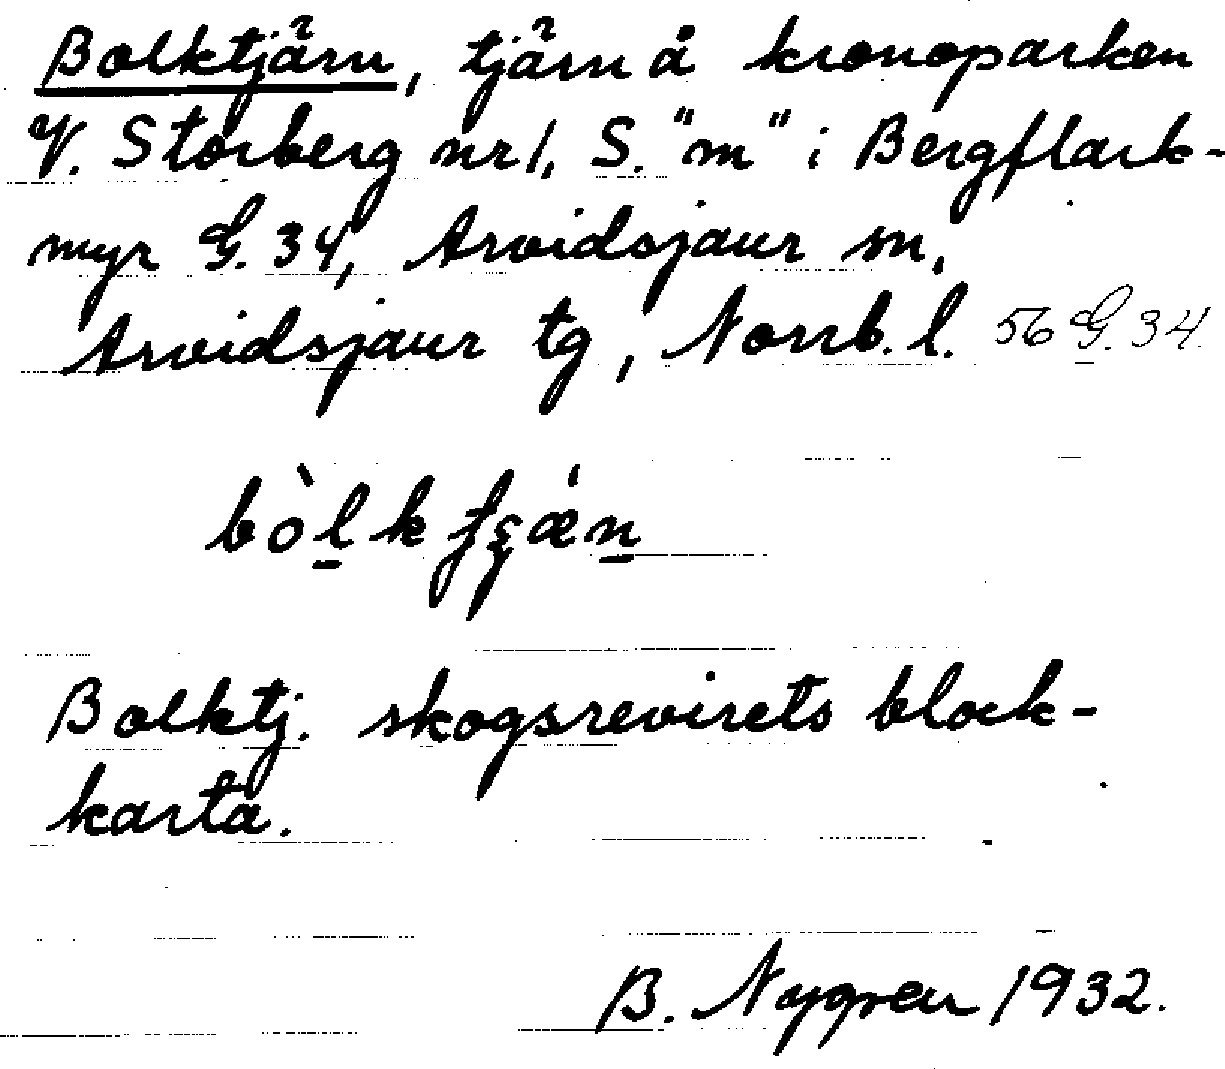 Bolktjärn, tjärn å kronoparken
V. Storberg nr 1, S. "m" i Bergflark-
myr G. 34, Arvidsjaur sn,
Arvidsjaur tg, Norrb. l. 56 G. 34.
bòl̲k ʃʂǽn̲
Bolktj. skogsrevirets block-
karta.
B. Nygren 1932.